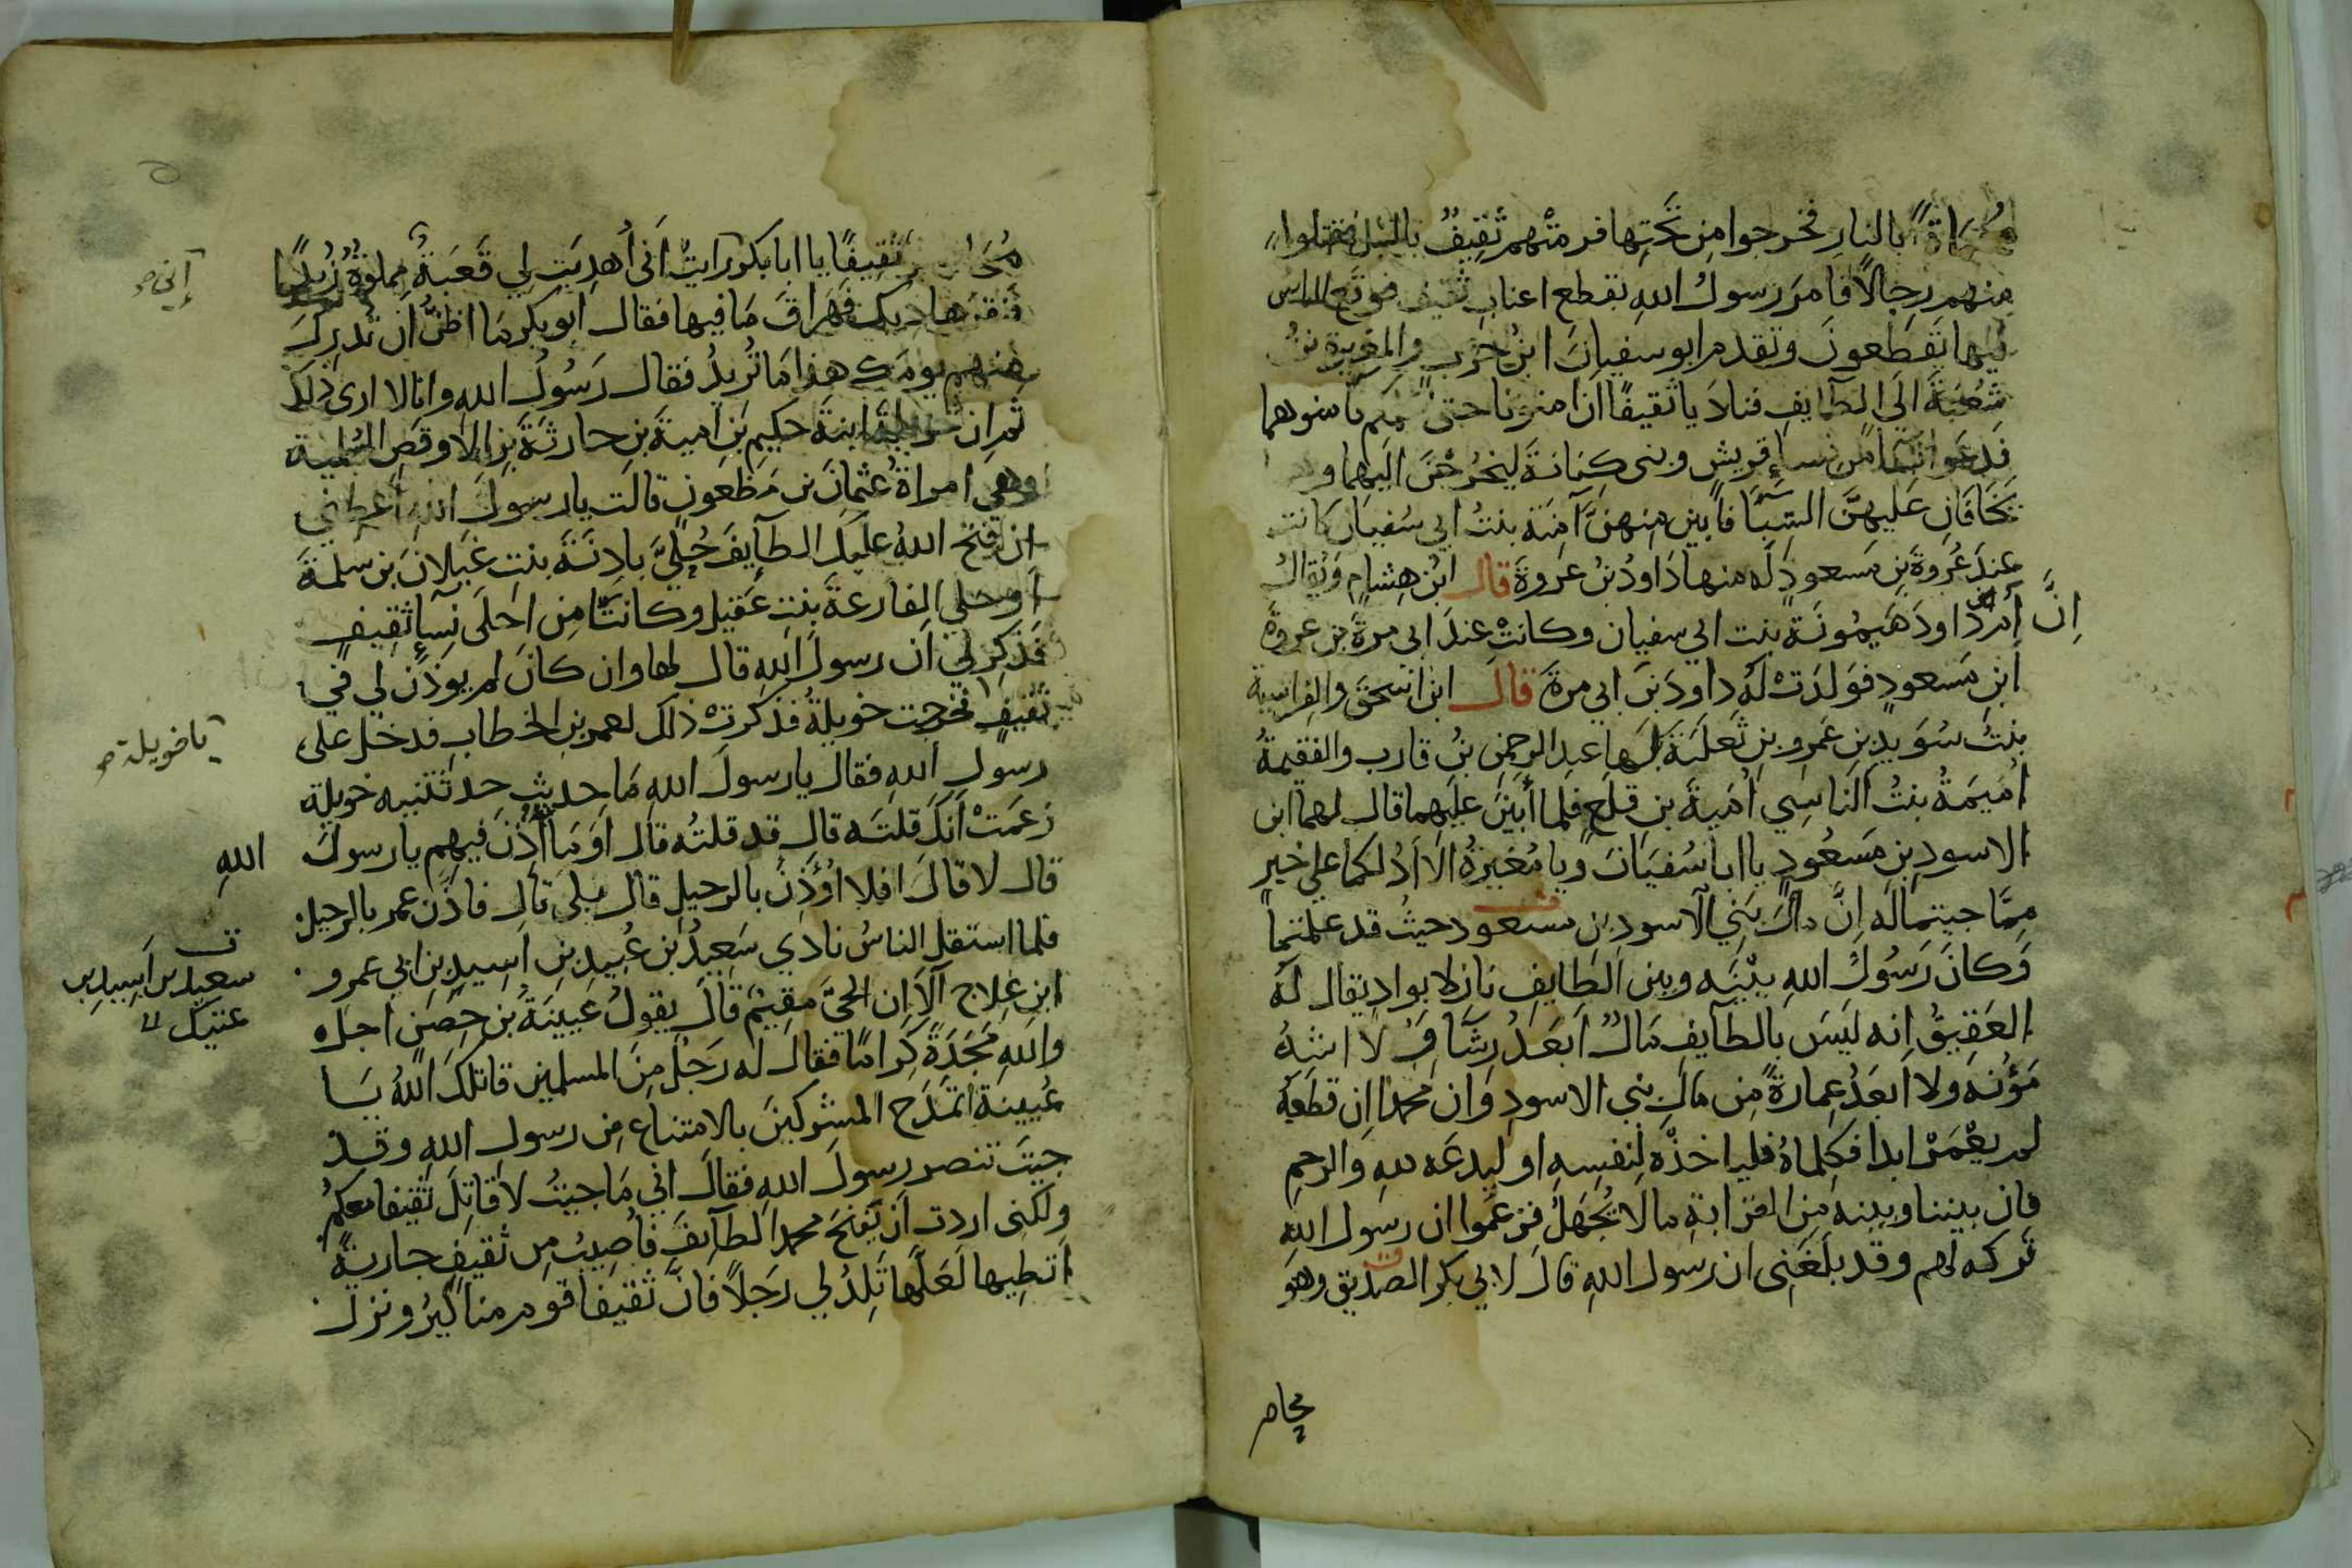 محماة بالنار فخرجوا من تحتها فرمتهم ثقيف بالنبل فقتلوا
منهم رجالا فامر رسول الله بقطع اعناب ثقيف فوقع الناس
فيها يقطعون وتقدم ابو سفيان ابن حرب والمغيرة بن
شعبة الى الطايف فناديا ثقيفا ان امنونا حتى نكلمكم فامنوهما
فدعوا نسا من نسا قريش وبنى كنانة ليخرجن اليهما وهما
يخافان عليهن السبا فابين منهن آمنة بنت ابي سفيان كانت
عند عروة بن مسعود له منها داود بن عروة قال ابن هشام ويقال
إنّ ام داود ميمونة بنت ابي سفيان وكانت عند ابي مرة بن عروة
ابن مسعود فولدت له داود بن ابي مرة قال ابن اسحق والفراسية
بنت سويد بن عمرو بن ثعلبة لها عبد الرحمن بن قارب والفقيمة
اميمة بنت الناسي امية بن قلع فلما أبين عليهما قال لهما ابن
الاسود بن مسعود يا ابا سفيان ويا مغيرة الا ادلكما على خير
مما جيتما له إنّ مال بني الاسود بن مسعود حيث قد علمتما
وكان رسول الله بينه وبين الطايف نازلا بواد يقال له
العقيق انه ليس بالطايف مال ابعد رشا ولا اشد
مؤنه ولا ابعد عمارة من مال بني الاسود وان محمدا ان قطعه
لم يعمر ابدا فكلماه فلياخذه لنفسه او ليدعه لله والرحم
فان بيننا وبينه من القرابة مالا يجهل فزعموا ان رسول الله
تركه لهم وقد بلغنى ان رسول الله قال لابي بكر الصديق وهو
محاصر
ثقيفا يا ابا بكر رايت اني أهديت لي قعبة مملوة زبدا
فنقرها ديك فهراق ما فيها فقال ابو بكر ما اظن ان تدرك
منهم يومك هذا ما تريد فقال رسول الله وانا لا ارى ذلك
ثم ان خويلة ابنة حكيم بن امية بن حارثة بن الاوقص السلمية
وهي امراة عثمان بن مظعون قالت يا رسول الله اعطني
ان فتح الله عليك الطآيف حلي بادنة بنت غيلان بن سلمة
او حلي الفارعة بنت عقيل وكانتا من احلى نسآ ثقيف
فذكر لي ان رسول الله قال لها وان كان لم يوذن لي في
ثقيف فخرجت خويلة فذكرت ذلك لعمر بن الخطاب فدخل على
رسول الله فقال يا رسول الله ما حديث حدثتنيه خويلة
زعمت انك قلته قال قد قلته قال او ما أذن فيهم يا رسول الله
قال لا قال افلا اؤذن بالرحيل قال بلى قال فاذن عمر بالرحيل
فلما استقل الناس نادي سعيد بن عبيد بن اسيد بن ابي عمرو
ابن علاج آلا ان الحي مقيم قال يقول عيينة بن حصن اجل
والله مجدة كراما فقال له رجل من المسلمين قاتلك الله يا
عيينة اتمدح المشركين بالامتناع من رسول الله وقد
جيت تنصر رسول الله فقال اني ما جيت لاقاتل ثقيفا معكم
ولكنى اردت ان يفتح محمد الطآيف فاصيب من ثقيف جارية
اتطيها لعلها تلد لي رجلا فان ثقيفا قوم مناكير ونزل
إني
يا خويلة
سعيد بن اسيد بن
عتيك